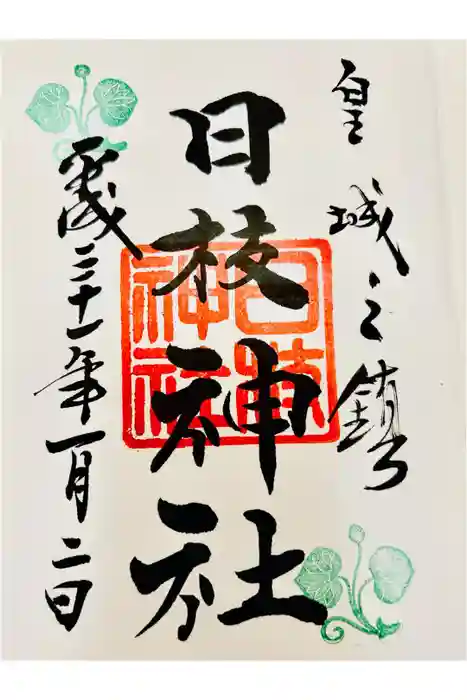 皇城之鎮
日枝神社
日枝神社
平成三十一年一月二日